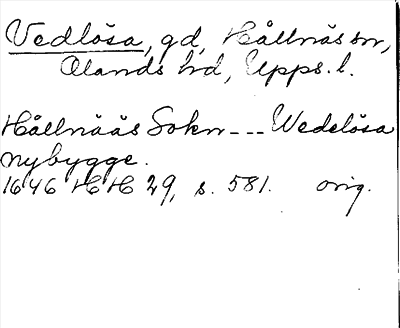 Vedlösa, gd, Hållnäs sn,
Olands hd, Upps. l.
Hållnääs Sokn --- Wedelösa
nybygge.
1646 HH 29, s. 581. orig.